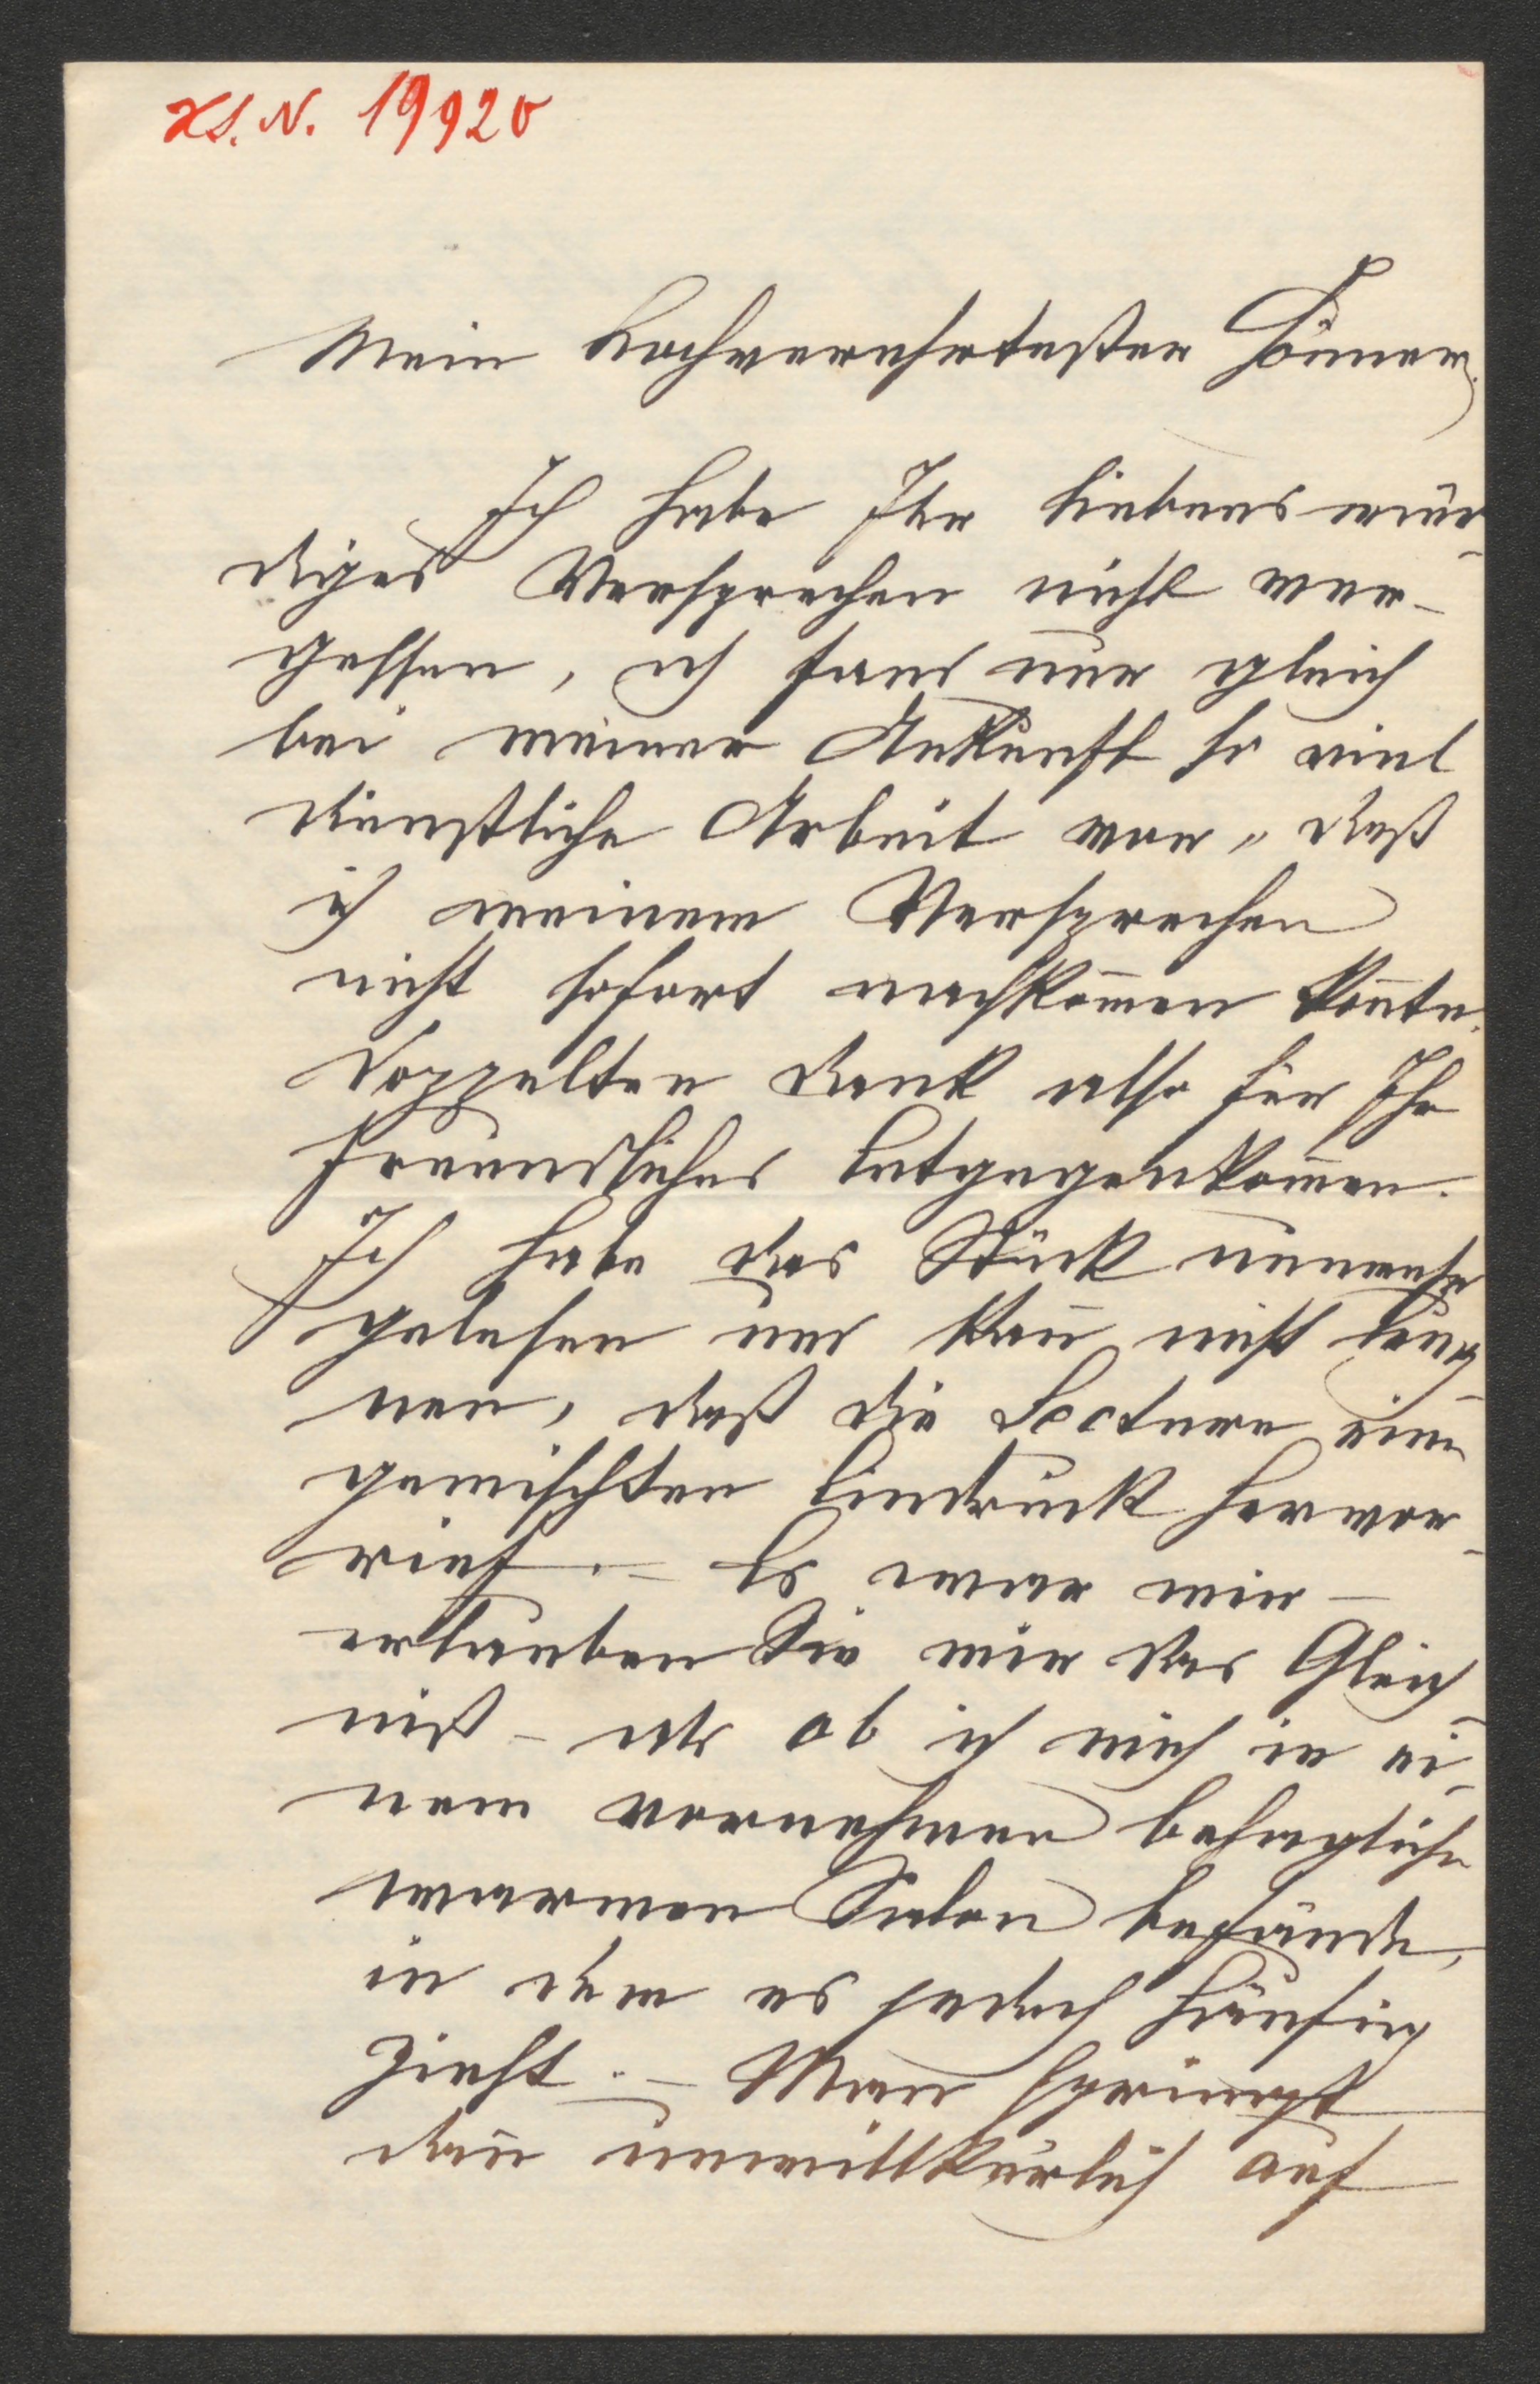 H.I.N. 19920
Mein hochverehrtester Gönner,
Ich habe Ihr liebenswür-
diges Versprechen nicht ver-
gessen, ich fand nur gleich
bei meiner Ankunft so viel
dienstliche Arbeit vor, daß
ich meinem Versprechen
nicht sofort nachkom̄en kon̄te.
Doppelten Dank also für Ihr
freundliches Entgegenkom̄en.
Ich habe das Stück nunmehr
gelesen und kan̄ nicht läug-
nen, daß die Lecture einen
gemischten Eindruck hervor-
rief. – Es war mir –
erlauben Sie mir das Gleich-
niß – als ob ich mich in ei-
nem vornehmen behaglichen
warmen Salon befände,
in dem es jedoch häufig
zieht. – Man springt
dan̄ unwillkürlich auf